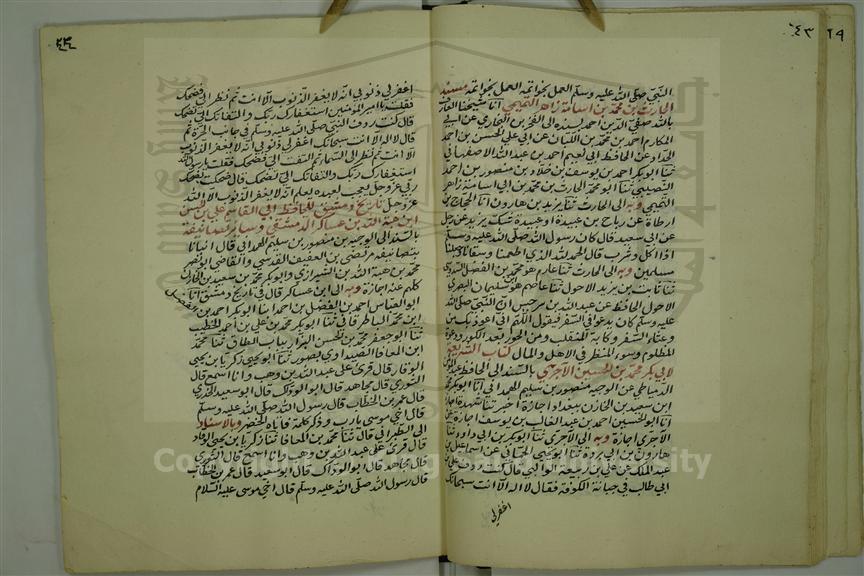 ٤٣ ٢٩
النبي صلى الله عليه وسلم العمل بخواتمه العمل بخواتمه مسند
الحارث بن محمد بن اسامة زاهر التميمي انا شيخنا العارف
بالله صفي الدين احمد بسنده الى الفخر بن البخاري عن ابي
المكارم احمد بن محمد اللبان عن ابي علي الحسن بن احمد
الحداد عن الحافظ ابي نعيم احمد بن عبد الله الاصفهاني
ثنا ابو بكر احمد بن يوسف بن خلاد بن منصور بن احمد
النصيبي ثنا ابو محمد الحارث بن محمد بن ابي اسامة زاهر
التميمي وبه الى الحارث ثنا يزيد بن هارون انا الحجاج بن
ارطاة عن رباح بن عبيدة او عبيدة شك يزيد عن رجل
عن ابي سعيد قال كان رسول الله صلى الله عليه وسلم
اذا اكل وشرب قال الحمد لله الذي اطعمنا وسقانا وجعلنا
مسلمين وبه الى الحارث ثنا عارم هو محمد بن الفضل السدوسي
ثنا ثابت بن يزيد الاحول ثنا عاصم هو سليمان البصري
الاحول الحافظ عن عبد الله بن سرجس ان النبي صلى الله
عليه وسلم كان يدعو في السفر فيقول اللهم اني اعوذ بك من
وعثاء السفر وكابة المنقلب ومن الحور بعد الكور ودعوة
المظلوم وسوء المنظر في الاهل والمال كتاب الشريعة
لابي بكر محمد بن الحسين الاجري بالسند الى الحافظ
الدمياطي عن الوجيه منصور بن سليم الهمداني انا ابو بكر محمد
ابن سعيد بن الخازن ببغداد اجازة اخبرتنا شهدة اجازة
انا ابو الحسين احمد بن عبد القادر بن يوسف اجازة عن
الاجري اجازة وبه الى الاجري ثنا ابو بكر بن ابي داود ثنا
هارون بن ابي بردة ثنا ابو يحيى الحماني عن اسماعيل بن
عبد الملك عن علي بن ربيعة الوالبي قال كنت مع علي بن
ابي طالب في جبانة الكوفة فقال لا اله الا انت سبحانك
اغفر لي
اغفر لي ذنوبي انه لا يغفر الذنوب الا انت ثم نظر الي فضحك
فقلت يا امير المؤمنين استغفارك ربك والتفاتك الي تضحك
قال كنت ردف النبي صلى الله عليه وسلم في جانب الحرة ثم
قال لا اله الا انت سبحانك اغفر لي ذنوبي انه لا يغفر الذنوب
الا انت ثم نظر الى السماء ثم التفت الي فضحك فقلت يا رسول الله
استغفارك ربك والتفاتك الي تضحك قال ضحكت لضحك
ربي عز وجل يعجب لعبده يعلم انه لا يغفر الذنوب الا الله
عز وجل تاريخ دمشق للحافظ ابي القاسم علي بن الحسن
ابن هبة الله بن عساكر الدمشقي وسائر تصانيفه
بالسند الى الوجيه بن منصور بن سليم الهمداني قال انبانا
بتصانيفه مرتضى بن العفيف القدسي والقاضي ابو نصر
محمد بن هبة الله بن الشيرازي وابو بكر محمد بن سعيد بن الخازن
كلهم عنه اجازة وبه الى ابن عساكر قال في تاريخ دمشق انا
ابو العباس احمد بن الفضل بن احمد انا ابو بكر احمد بن الفضل
ابن محمد الباطرقاني ثنا ابو بكر محمد بن علي بن احمد الخطيب
ثنا ابو جعفر محمد بن الحسن البزار بباب الطاق ثنا محمد
ابن المعافا الصيداوي بصور ثنا ابو يحيى زكريا بن يحيى
الوقار قال قرئ على عبد الله بن وهب وانا اسمع قال
الثوري قال مجاهد قال ابو الوداك قال ابو سعيد الخدري
قال عمر بن الخطاب قال رسول الله صلى الله عليه وسلم
قال اخي موسى يا رب وذكر كلمة فاتاه الخضر وبالاسناد
الى الطبراني قال ثنا محمد بن المعافا ثنا زكريا بن يحيى الوقاد
قال قرئ على عبد الله بن وهب وانا اسمع قال الثوري
قال مجاهد قال ابو الوداك قال ابو سعيد قال عمر بن الخطاب
قال رسول الله صلى الله عليه وسلم قال اخي موسى عليه السلام
Copyright © King Saud University